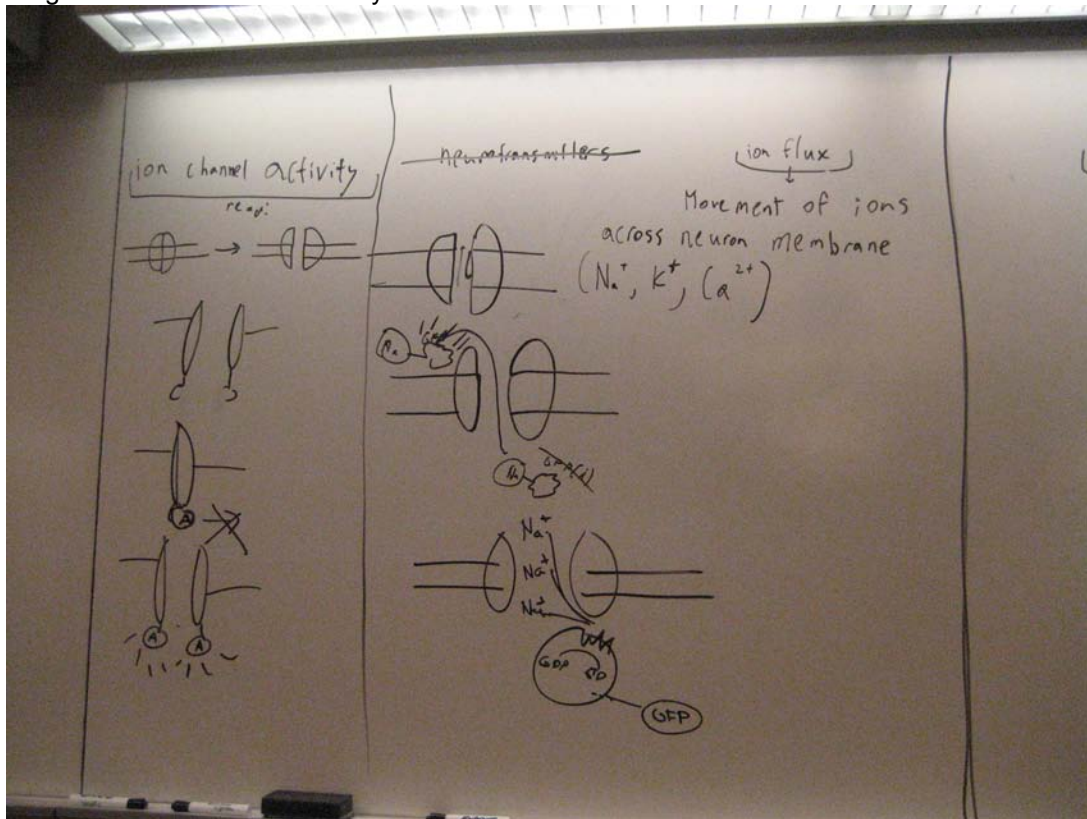 ion channel activity
neurotransmitters
ion flux
Movement of ions
across neuron membrane
(Na⁺, K⁺, Ca²⁺)
A
A
A
Na⁺
Na⁺
Na⁺
GDP
GFP